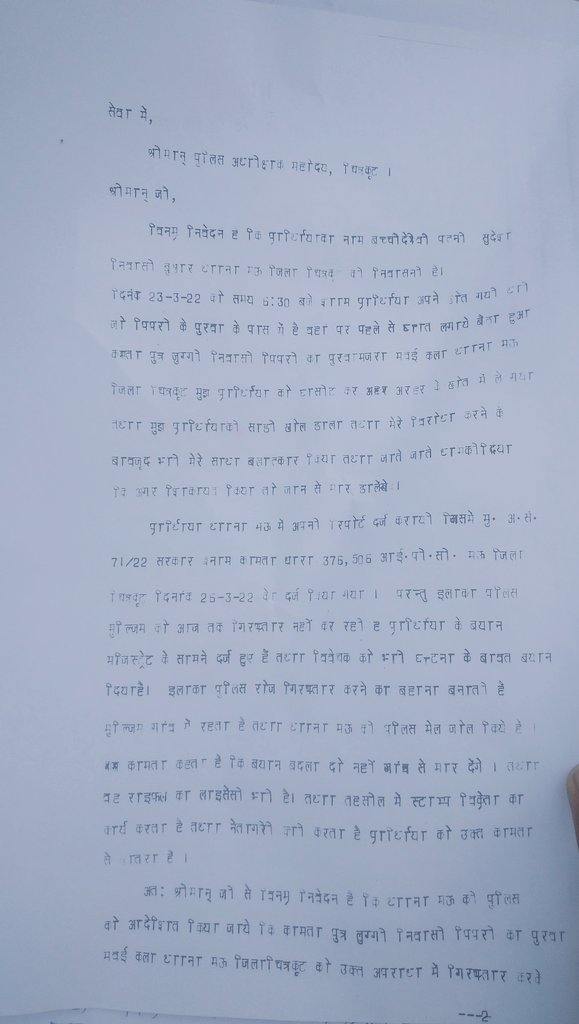 सेवा में,
श्रीमान् पुलिस अधीक्षक महोदय, चित्रकूट ।
श्रीमान् जी,
विनम्र निवेदन है कि प्रार्थियाका नाम बच्चीदेवी पत्नी सुदेश
निवासी बुधार थाना मऊ जिला चित्रकूट की निवासनी है।
दिनांक 23-3-22 को समय 6:30 बजे शाम प्रार्थिया अपने खेत गयी थी
जो पिपरी के पुरवा के पास में है वहां पर पहले से घात लगाये बैठा हुआ
कामता पुत्र लुग्गी निवासी पिपरी का पुरवामजरा मवई कला थाना मऊ
जिला चित्रकूट मुझ प्रार्थिया को घसीट कर अरहर के खेत में ले गया
तथा मुझ प्रार्थियाकी साडी खोल डाला तथा मेरे विरोध करने के
बावजूद भी मेरे साथ बलात्कार किया तथा जाते जाते धमकीदिया
कि अगर शिकायत किया तो जान से मार डालेंगे ।
प्रार्थिया थाना मऊ में अपनी रिपोर्ट दर्ज करायी जिसमे मु. अ.सं.
71/22 सरकार बनाम कामता धारा 376,506 आई.पी.सी. मऊ जिला
चित्रकूट दिनांक 26-3-22 को दर्ज किया गया । परन्तु इलाका पुलिस
मुल्जिम को आज तक गिरफ्तार नहीं कर रही है प्रार्थिया के बयान
मजिस्ट्रेट के सामने दर्ज हुए हैं तथा विवेचक को भी घटना के बावत बयान
दियाहै। इलाका पुलिस रोज गिरफ्तार करने का बहाना बनाती है
मुल्जिम गांव में रहता है तथा थाना मऊ की पुलिस मेल जोल किये है ।
कामता कहता है कि बयान बदला दो नहीं से मार देंगे । तथा
वह राइफल का लाइसेंसी भी है। तथा तहसील में स्टाम्प विक्रेता का
कार्य करता है तथा नेतागीरी भी करता है प्रार्थिया को उक्त कामता
से खतरा है ।
अत: श्रीमान् जी से विनम्र निवेदन है कि थाना मऊ की पुलिस
को आदेशित किया जाये कि कामता पुत्र लुग्गी निवासी पिपरी का पुरवा
मवई कला थाना मऊ जिलाचित्रकूट को उक्त अपराध में गिरफ्तार करके
---2